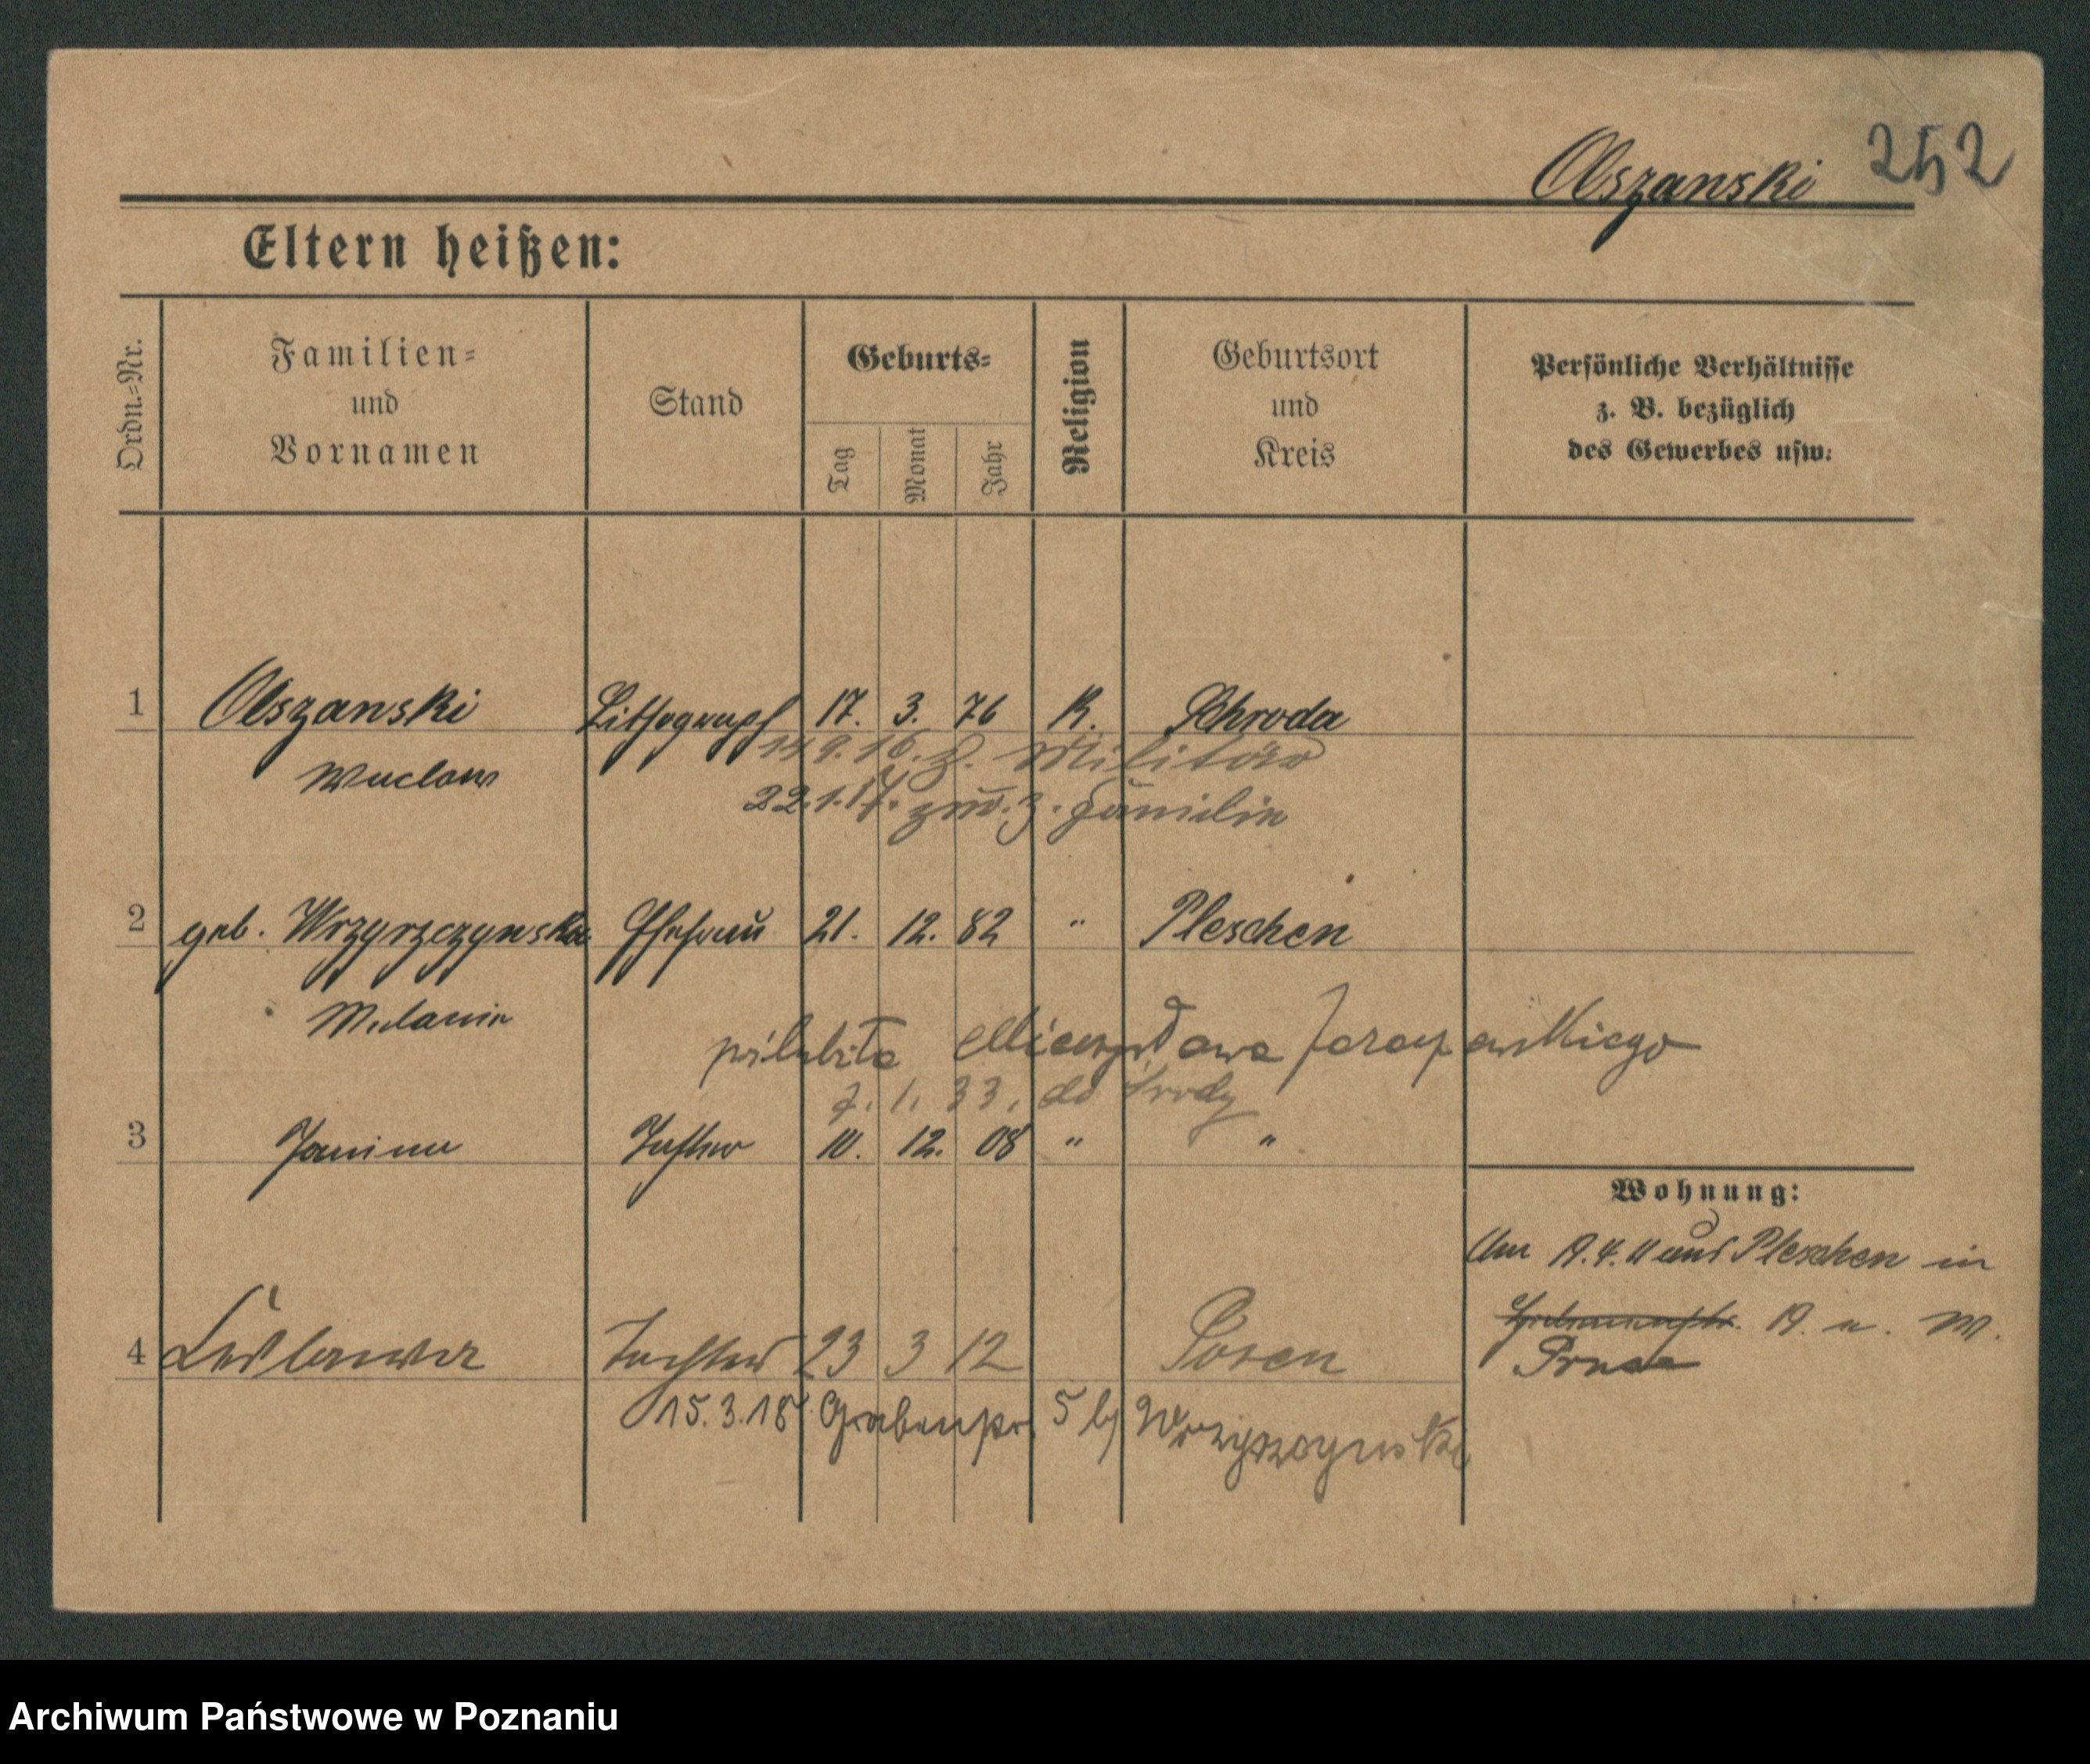 Olszanski 252
Eltern heißen:
Ordn.=Nr.
Familien=
und
Vornamen
Stand
Geburts=
Tag
Monat
Jahr
Religion
Geburtsort
und
Kreis
Persönliche Verhältnisse
z. B. bezüglich
des Gewerbes usw.
1 Olszanski Lithograph 17. 3. 76 K. Schroda
14.9.16. z. Militär
Waclaw
22.1.17. zur. z. Familie
2 geb. Wrzyszczynska Ehefrau 21. 12. 82 " Pleschen
Melanie
7. 1. 33. do Środy
3 Janina Tochter 10. 12. 08 " "
Wohnung:
Am 19.4.11 aus Pleschen in
19. u. M.
4 Ladislawa Tochter 23 3 12 Posen
15.3.18 Graben 5 b/